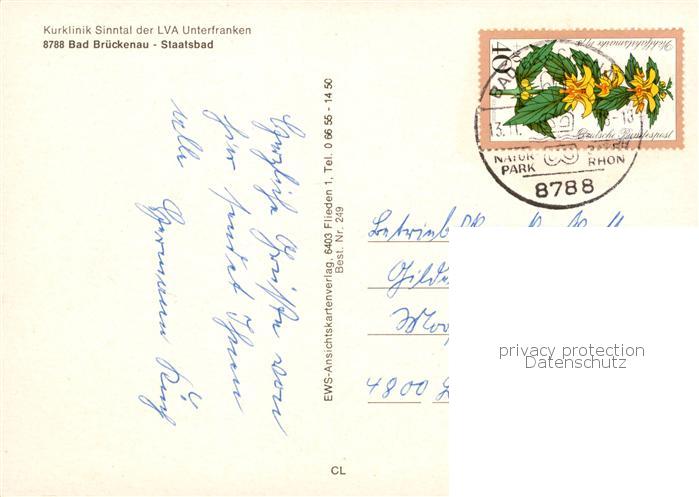 Kurklinik Sinntal der LVA Unterfranken
8788 Bad Brückenau - Staatsbad
Herzliche Grüße von
hier sendet Ihnen
alle
Hermann
EWS-Ansichtskartenverlag, 6403 Flieden 1, Tel. 0 66 55 - 14 50
Best. Nr. 249
CL
40
Wohlfahrtsmarke
Deutsche Bundespost
13.11.
NATUR
PARK
RHÖN
8788
4800
privacy protection
Datenschutz